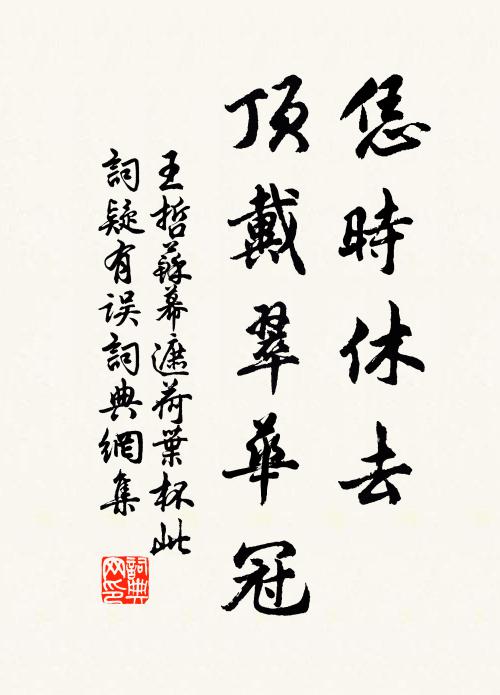 恁時休去
頂戴翠華冠
王哲蘇幕遮荷葉杯此
詞疑有误詞典網集
詞典网印